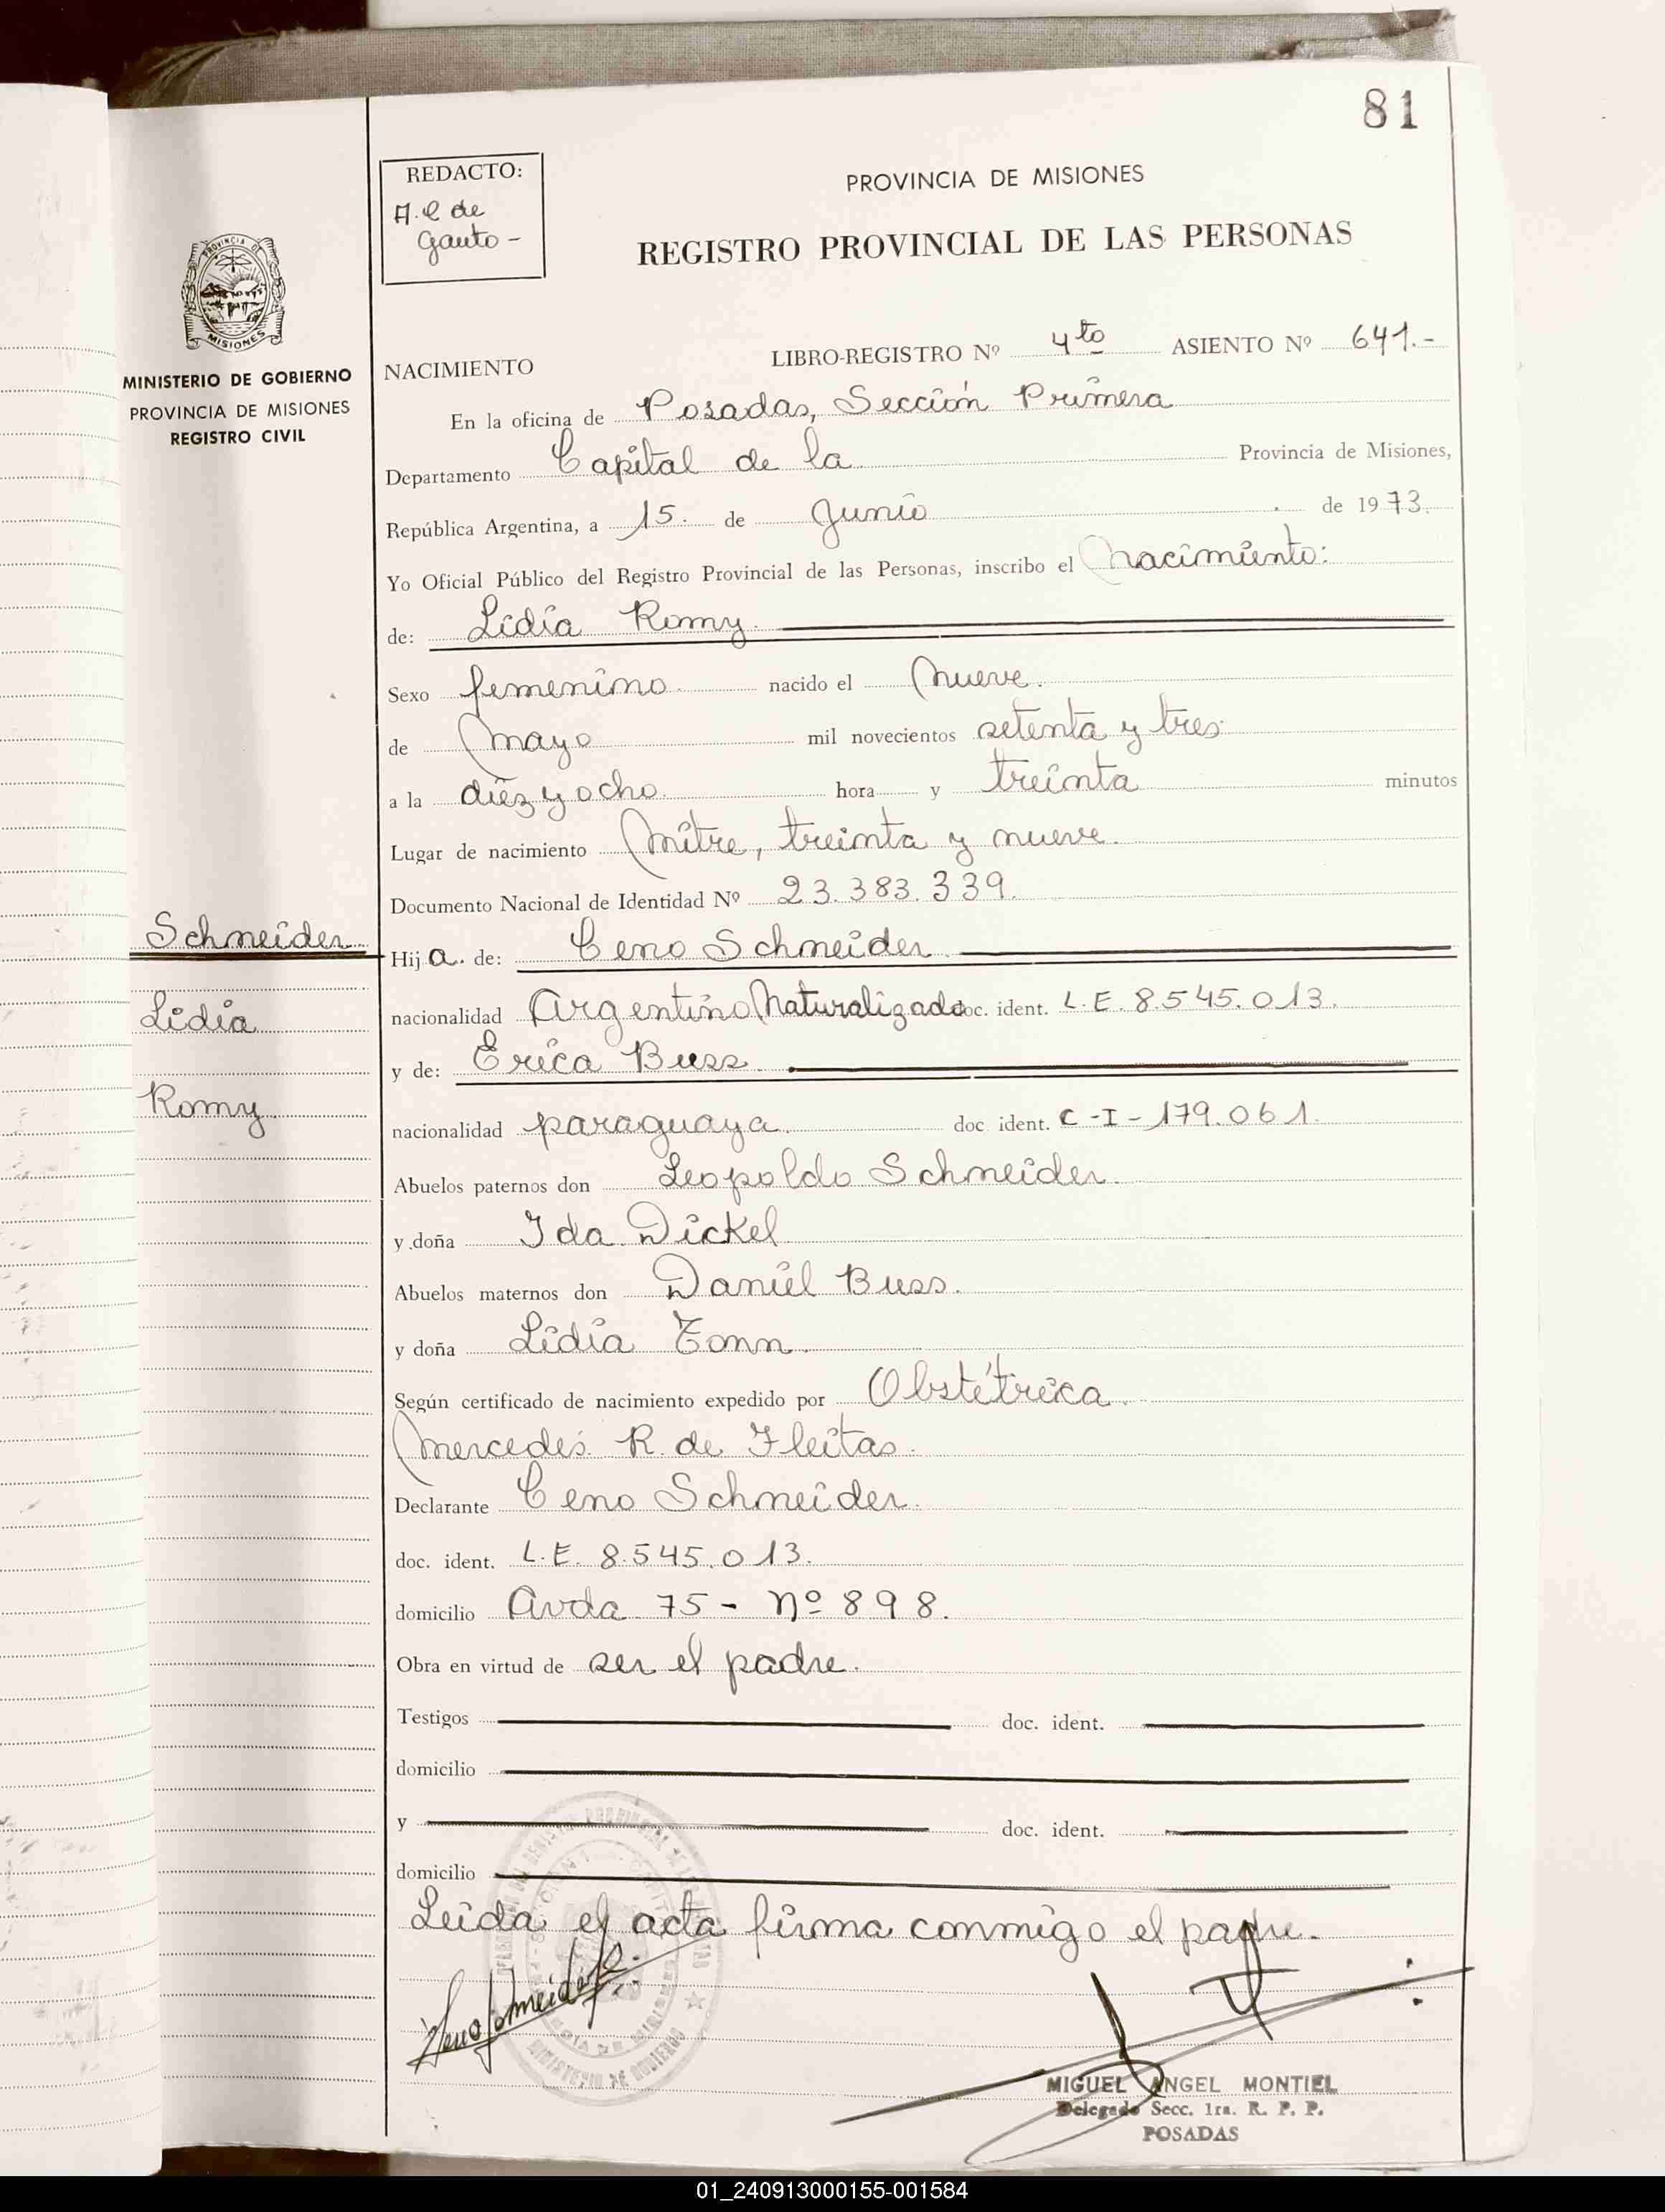 81
REDACTO:
A. C de
Gauto -
PROVINCIA DE MISIONES
REGISTRO PROVINCIAL DE LAS PERSONAS
MISIONES
MINISTERIO DE GOBIERNO
PROVINCIA DE MISIONES
REGISTRO CIVIL
NACIMIENTO LIBRO-REGISTRO Nº 4to ASIENTO Nº 641.-
En la oficina de Posadas, Sección Primera
Departamento Capital de la Provincia de Misiones,
República Argentina, a 15. de Junio de 1973.
Yo Oficial Público del Registro Provincial de las Personas, inscribo el Nacimiento:
de: Lidia Romy.
Sexo femenino. nacido el Nueve.
de Mayo mil novecientos setenta y tres
a la diez y ocho. hora y treinta minutos
Lugar de nacimiento Mitre, treinta y nueve.
Documento Nacional de Identidad Nº 23.383.339.
Schneider
Hija. de: Ceno Schneider
Lidia
nacionalidad Argentino Naturalizado doc. ident. L.E. 8.545.013.
y de: Erica Buss
Romy
nacionalidad paraguaya. doc ident. C-I-179.061.
Abuelos paternos don Leopoldo Schneider.
y doña Ida Dickel
Abuelos maternos don Daniel Buss.
y doña Lidia Tonn.
Según certificado de nacimiento expedido por Obstétrica
Mercedes R. de Fleitas.
Declarante Ceno Schneider.
doc. ident. L.E. 8.545.013.
domicilio Avda 75 - Nº 898.
Obra en virtud de ser el padre.
Testigos doc. ident.
domicilio
y doc. ident.
domicilio
Leída el acta firma conmigo el padre.
MIGUEL ANGEL MONTIEL
Delegado Secc. 1ra. R. P. P.
POSADAS
01_240913000155-001584